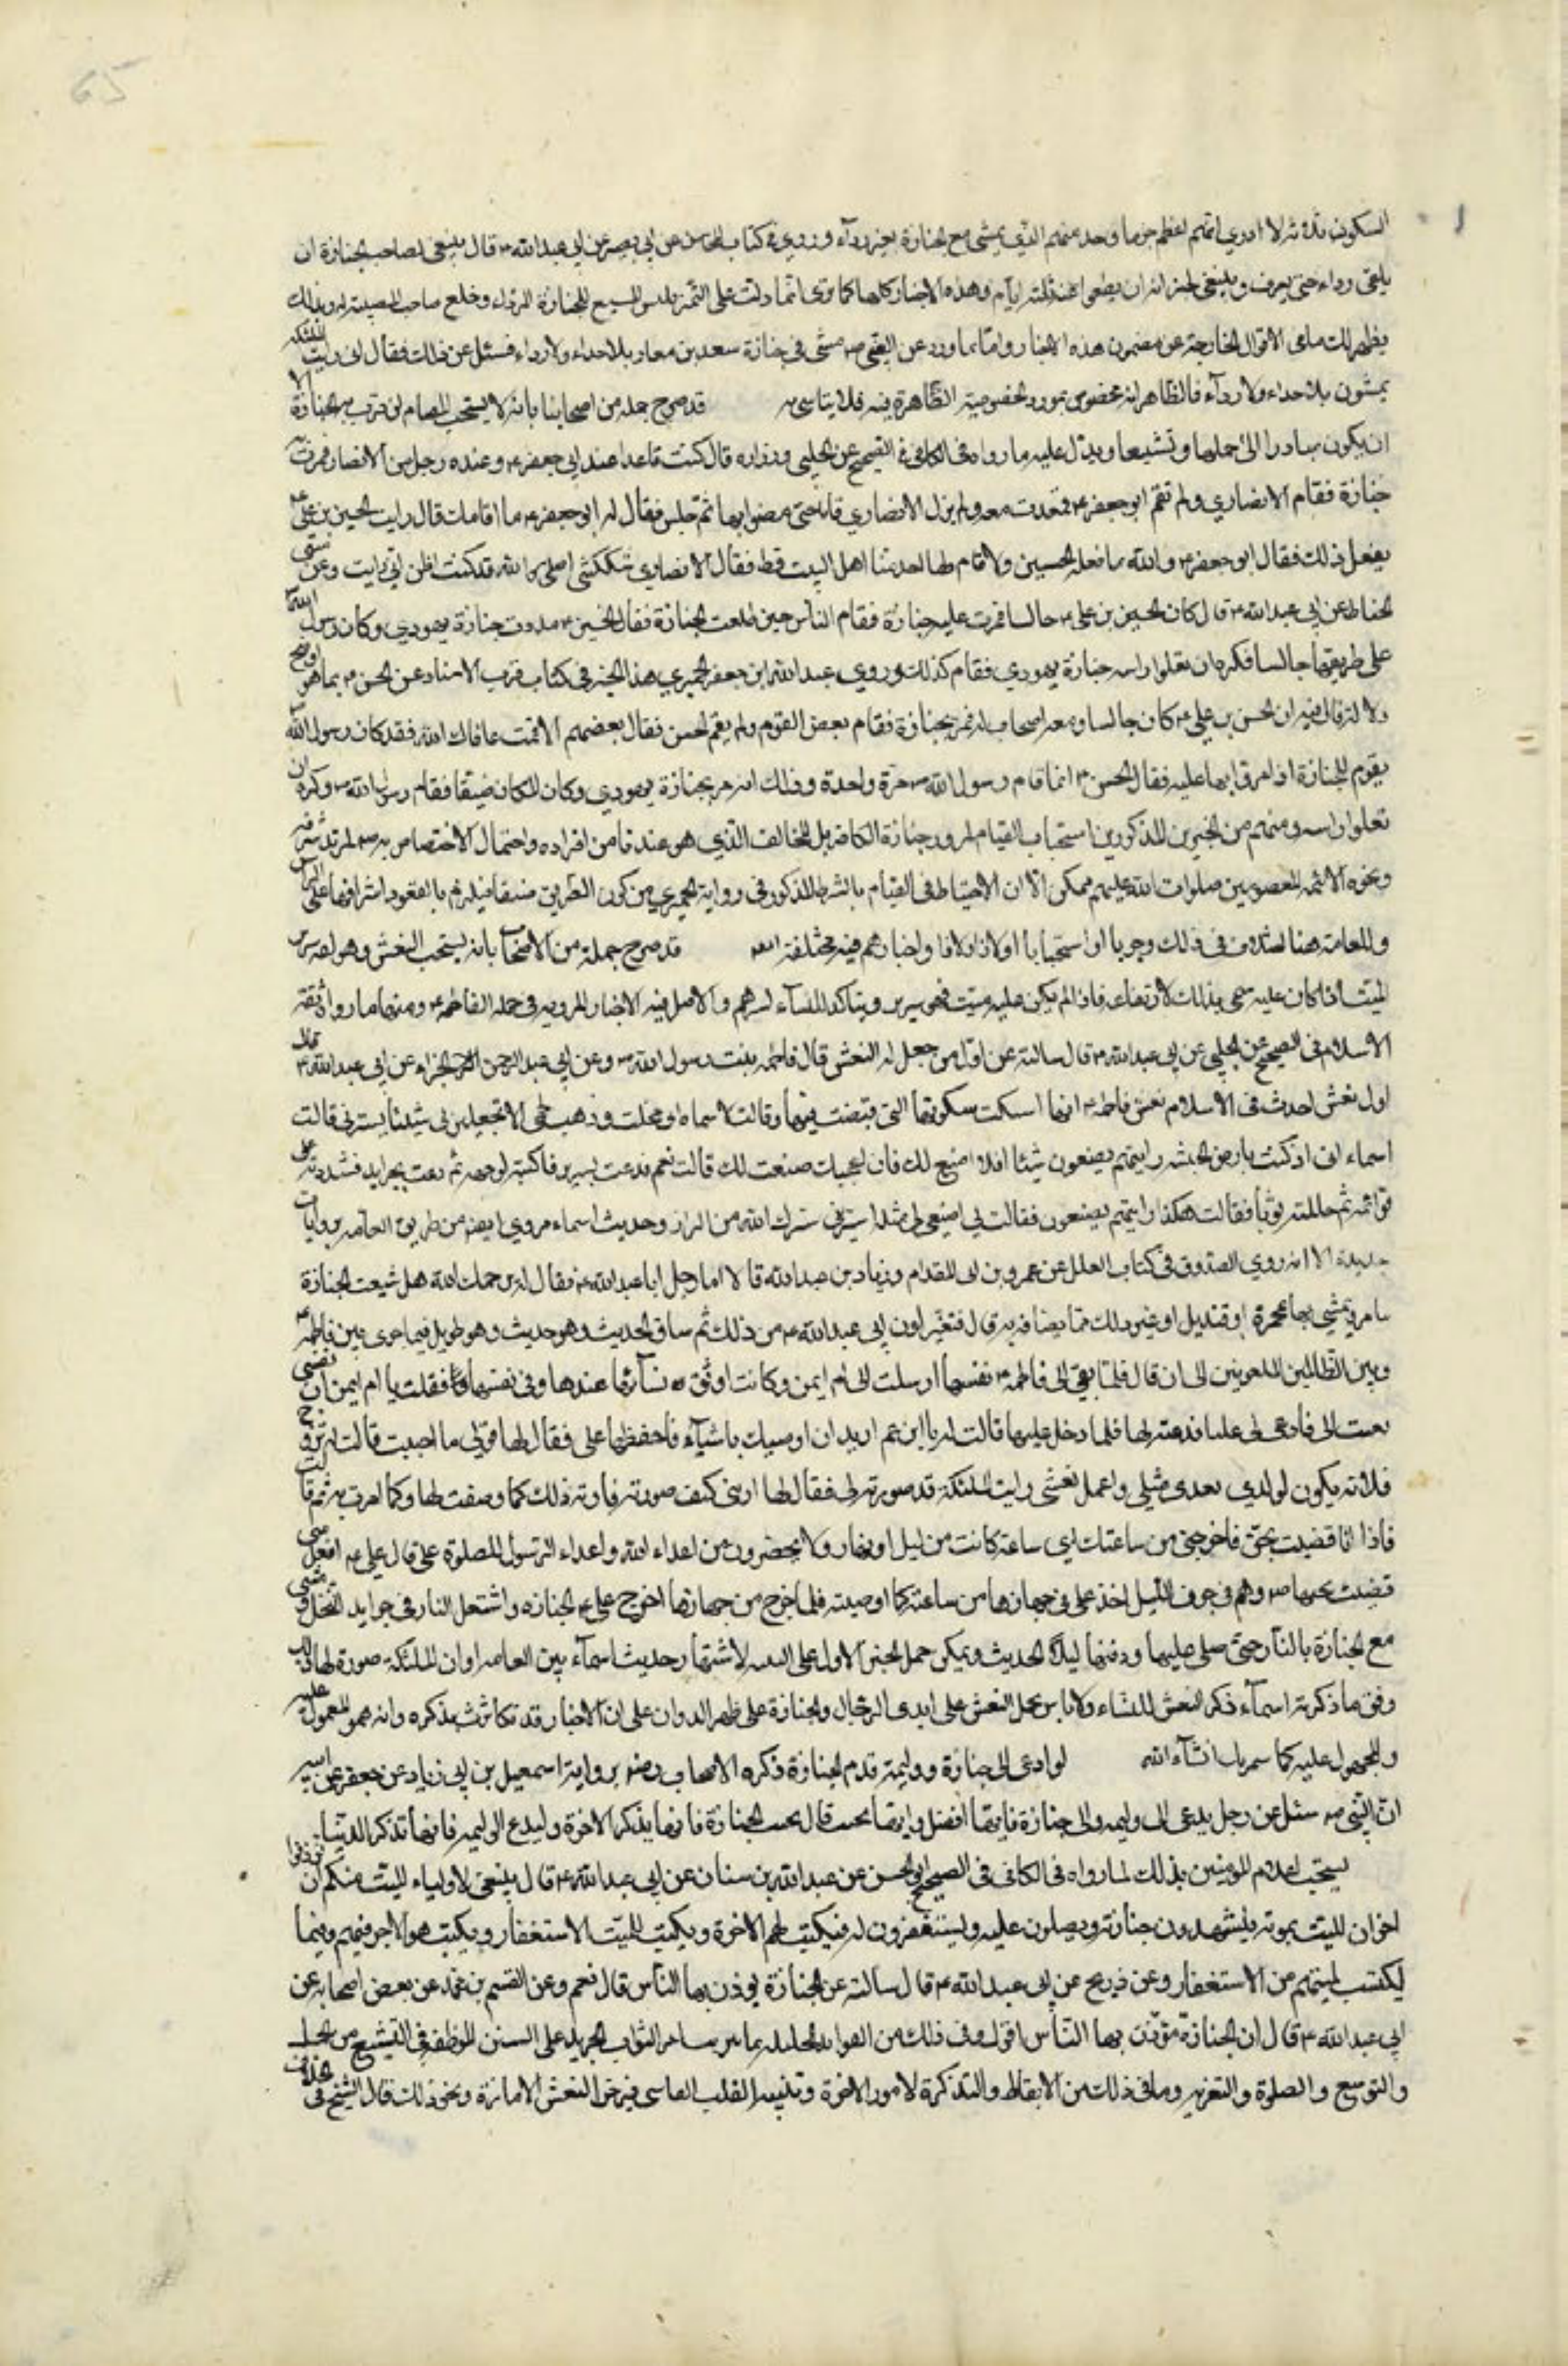 65
السكوني ثلاثة لا ادري ايهم اعظم جرما وحد منهم الذي يمشي مع الجنازة بغير رداء وروي في كتاب المحاسن عن ابي بصير عن ابي عبدالله ع قال ينبغي لصاحب الجنازة ان
يلقى رداءه حتى يعرف وينبغي لجيرانه ان يطعموا عنه ثلثة ايام وهذه الاخبار كلها كما ترى انما دلت على التميز بلبس المشيع للجنازة الرداء وخلع صاحب المصيبة له وبذلك
يظهر لك ما في الاقوال الخارجة عن مضمون هذه الاخبار واما ما ورد عن النبي ص مشى في جنازة سعد بن معاذ بلا حذاء ولا رداء فسئل عن ذلك فقال اني رايت الملئكة
يمشون بلا حذاء ولا رداء فالظاهر انه مخصوص بمورده لخصوصيته الظاهرة فيه فلا يتاسى به قد صرح جملة من اصحابنا بانه لا يستحب القيام لمن مرت به الجنازة الا
ان يكون مبادرا الى حملها وتشييعها ويدل عليه ما رواه في الكافي في الصحيح عن الحلبي وزرارة قال كنت قاعدا عند ابي جعفر ع وعنده رجل من الانصار فمرت به
جنازة فقام الانصاري ولم تقم ابو جعفر ع فقعدت معه ولم يزل الانصاري قائما حتى مضوا بها ثم جلس فقال له ابو جعفر ع ما اقامك قال رايت الحسين بن علي ع
يفعل ذلك فقال ابو جعفر ع والله ما فعله الحسين ولا قام لها احد منا اهل البيت قط فقال الانصاري شككتني اصلحك الله قد كنت اظن اني رايت وعن مثنى
الحناط عن ابي عبدالله ع قال كان الحسين بن علي ع جالسا فمرت عليه جنازة فقام الناس حين طلعت الجنازة فقال الحسين ع مرت جنازة يهودي وكان رسول الله ص
على طريقها جالسا فكره ان تعلوا راسه جنازة يهودي فقام كذلك وروي عبدالله ابن جعفر الحميري هذا الخبر في كتاب قرب الاسناد عن الحسن ع بما هو اوضح
دلالة قال فيه ان الحسن بن علي ع كان جالسا ومعه اصحاب له فمر بجنازة فقام بعض القوم ولم يقم الحسن فقال بعضهم الا قمت عافاك الله فقد كان رسول الله
يقوم للجنازة اذا مر بها عليه فقال الحسن ع انما قام رسول الله ص مرة واحدة وذلك انه مر بجنازة يهودي وكان المكان ضيقا فقام رسول الله ص وكره ان
تعلوا راسه ومنهم من الخبرين المذكورين استحباب القيام لمرور جنازة الكافر بل المخالف الذي هو عندنا من افراده واحتمال الاختصاص به ص لمزيد شرفه
ونحوه الائمة المعصومين صلوات الله عليهم ممكن الا ان الاحتياط في القيام بالشرط المذكور في رواية الحميري من كون الطريق ضيقا فيلزم بالقعود اشرافها على الراس
وللعامة هنا اختلاف في ذلك وجوبا او استحبابا اولا ذا ولا ذا واخبارهم فيه مختلفة ايضا قد صرح جملة من الاصحاب بانه يستحب النعش وهو لغة سرير
الميت اذا كان عليه سمي بذلك لارتفاعه فاذا لم يكن عليه ميت فهو سرير ويتاكد للنساء لسترهم والاصل فيه الاخبار المروية في حمله الفاطمة ع ومنها ما رواه ثقة
الاسلام في الصحيح عن الحلبي عن ابي عبدالله ع قال سالته عن اول من جعل له النعش قال فاطمة بنت رسول الله ص وعن ابي عبد الرحمن الحذاء عن ابي عبدالله ع قال
اول نعش احدث في الاسلام نعش فاطمة ع انها اشتكت شكوتها التي قبضت فيها وقالت لاسماء اني نحلت وذهب لحمي الا تجعلين لي شيئا يسترني قالت
اسماء اني اذ كنت بارض الحبشة رايتهم يصنعون شيئا افلا اصنع لك فان اعجبك صنعت لك قالت نعم فدعت بسرير فاكبته لوجهه ثم دعت بجرايد فشددته على
قوائمه ثم جللته ثوبا فقالت هكذا رايتهم يصنعون فقالت لي اصنعي لي مثله استريني سترك الله من النار وحديث اسماء مروي ايضا من طريق العامة بروايات
عديدة الا انه روى الصدوق في كتاب العلل عن عمرو بن ابي المقدام وزياد بن عبدالله قالا اتى رجل ابا عبدالله ع فقال له يرحمك الله هل شيعت الجنازة
بنار يمشي بها مجمرة او قنديل او غير ذلك مما يضاء به قال فتغير لون ابي عبدالله ع من ذلك ثم ساق الحديث وهو حديث وهو طويل فيما جرى بين فاطمة ع
وبين الظالمين الملعونين الى ان قال فلما نعي الى فاطمة ع نفسها ارسلت الى ام ايمن وكانت اوثق نسائها عندها وفي نفسها فقلت يا ام ايمن ان نفسي
نعيت الى فادعي لي عليا فدعته لها فلما دخل عليها قالت له يا ابن عم اريد ان اوصيك باشياء فاحفظها علي فقال لها قولي ما احببت قالت له تزوج
فلانة يكون لولدي بعدي مثلي واعمل نعشي رايت الملئكة قد صورته لي فقال لها اريني كيف صورته فارته ذلك كما وصفت لها وكما امرت به ثم قالت
فاذا انا قضيت نحبي فاخرجني من ساعتك اي ساعة كانت من ليل او نهار ولا يحضرون من اعداء الله واعداء الرسول للصلوة علي قال علي ع افعل
قضيت نحبها ع وهم في جوف الليل اخذ علي في جهازها من ساعته كما اوصته فلما فرغ من جهازها اخرج علي ع الجنازه واشتعل النار في جرايد النخل ومشى
مع الجنازة بالنار حتى صلى عليها ودفنها ليلا الحديث ويمكن حمل الخبر الاول على التقية لاشتهار حديث اسماء بين العامة او ان الملئكة صورة لها ذلك
وفق ما ذكرته اسماء ذكر النعش للنساء ولا باس بحمل النعش على ايدي الرجال والجنازة على ظهر الدواب على ان الاخبار قد تكاثرت بذكره وانه هو المعمول عليه
والمحمول عليه كما سمر بك انشاء الله لو ادعي الى جنازة ووليمة قدم الجنازة ذكره الاصحاب رضه برواية اسمعيل بن ابي زياد عن جعفر عن ابيه
ان النبي ص سئل عن رجل يدعى الى وليمه والى جنازة فايهما افضل وايهما يجيب قال يجيب الجنازة فانها يذكر الاخرة وليدع الوليمة فانها تذكر الدنيا
يستحب اعلام المومنين بذلك لما رواه في الكافي في الصحيح او الحسن عن عبدالله بن سنان عن ابي عبدالله ع قال ينبغي لاولياء الميت منكم ان يؤذنوا
اخوان الميت بموته فيشهدون جنازته ويصلون عليه ويستغفرون له فيكتب لهم الاخرة ويكتب للميت الاستغفار ويكتب هو الاجر فيهم وفيما
ليكتسب لميتهم من الاستغفار وعن ذريح عن ابي عبدالله ع قال سالته عن الجنازة يوذن بها الناس قال نعم وعن القسم بن محمد عن بعض اصحابه عن
ابي عبدالله ع قال ان الجنازة مؤذن بها الناس اقول وفي ذلك من الفوائد الجليلة الثواب الجزيل على السنن الموظفة في التشييع من الحمل
والتربيع والصلوة والتعزية وما في ذلك من الايقاظ والتذكرة لامور الاخرة وتنبيه القلب القاسي النعش الامانة ونحو ذلك قال الشيخ في الخلاف